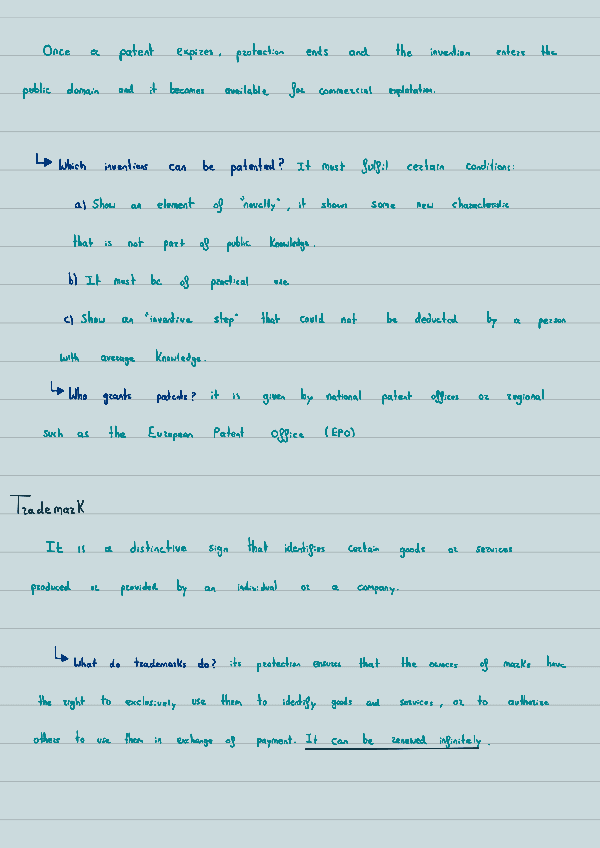 Once a patent expires, protection ends and the invention enters the
public domain and it becomes available for commercial exploitation.
Which inventions can be patented? It must fulfil certain conditions:
a) Show an element of "novelty", it shows some new characteristic
that is not part of public knowledge.
b) It must be of practical use
c) Show an "inventive step" that could not be deducted by a person
with average knowledge.
Who grants patents? it is given by national patent offices or regional
such as the European Patent Office (EPO)
Trademark
It is a distinctive sign that identifies certain goods or services
produced or provided by an individual or a company.
What do trademarks do? its protection ensures that the owners of marks have
the right to exclusively use them to identify goods and services, or to authorize
others to use them in exchange of payment. It can be renewed infinitely.